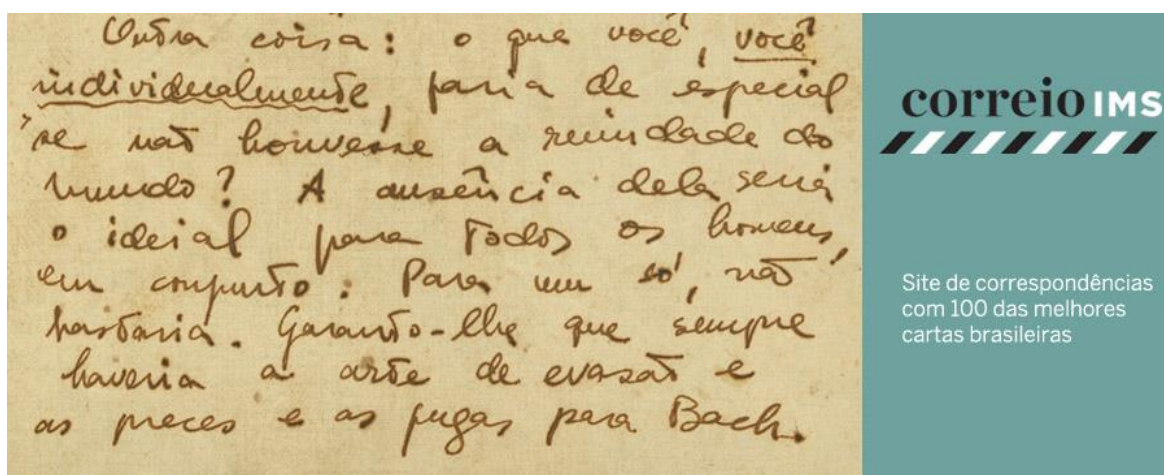 Outra coisa: o que você, você
individualmente, faria de especial
se não houvesse a ruindade do
mundo? A ausência dela seria
o ideial para todos os homens,
em conjunto. Para um só, não
bastaria. Garanto-lhe que sempre
haveria a arte de evasão e
as preces e as fugas para Bach.
correio IMS
Site de correspondências
com 100 das melhores
cartas brasileiras